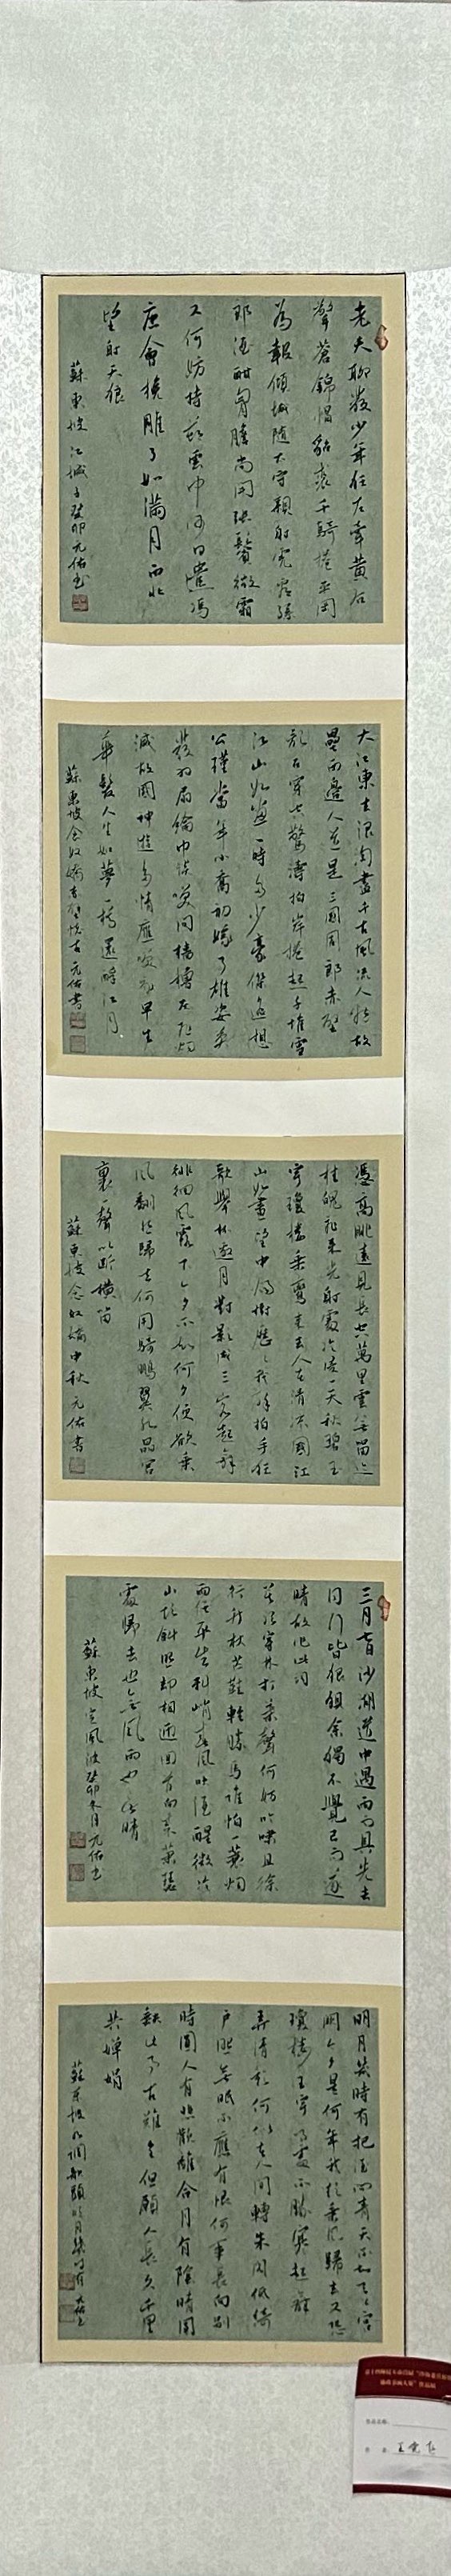 老夫聊發少年狂左牽黃右
擎蒼錦帽貂裘千騎捲平岡
為報傾城隨太守親射虎看孫
郎酒酣胸膽尚開張鬢微霜
又何妨持節雲中何日遣馮
唐會挽雕弓如滿月西北
望射天狼
蘇東坡江城子癸卯元佑書
大江東去浪淘盡千古風流人物故
壘西邊人道是三國周郎赤壁
亂石穿空驚濤拍岸捲起千堆雪
江山如畫一時多少豪傑遙想
公瑾當年小喬初嫁了雄姿英
發羽扇綸巾談笑間檣櫓灰飛煙
滅故國神遊多情應笑我早生
華髮人生如夢一樽還酹江月
蘇東坡念奴嬌赤壁懷古元佑書
憑高眺遠見長空萬里雲無留跡
桂魄飛來光射處冷浸一天秋碧玉
宇瓊樓乘鸞來去人在清涼國江
山如畫望中煙樹歷歷我醉拍手狂
歌舉杯邀月對影成三客起舞
徘徊風露下今夕不知何夕便欲乘
風翻然歸去何用騎鵬翼水晶宮
裏一聲吹斷橫笛
蘇東坡念奴嬌中秋元佑書
三月七日沙湖道中遇雨雨具先去
同行皆狼狽余獨不覺已而遂
晴故作此詞
莫聽穿林打葉聲何妨吟嘯且徐
行竹杖芒鞋輕勝馬誰怕一蓑煙
雨任平生料峭春風吹酒醒微冷
山頭斜照卻相迎回首向來蕭瑟
處歸去也無風雨也無晴
蘇東坡定風波癸卯冬月元佑書
明月幾時有把酒問青天不知天上宮
闕今夕是何年我欲乘風歸去又恐
瓊樓玉宇高處不勝寒起舞
弄清影何似在人間轉朱閣低綺
戶照無眠不應有恨何事長向別
時圓人有悲歡離合月有陰晴圓
缺此事古難全但願人長久千里
共嬋娟
蘇東坡水調歌頭明月幾時有元佑書
作品名称:
作 者: